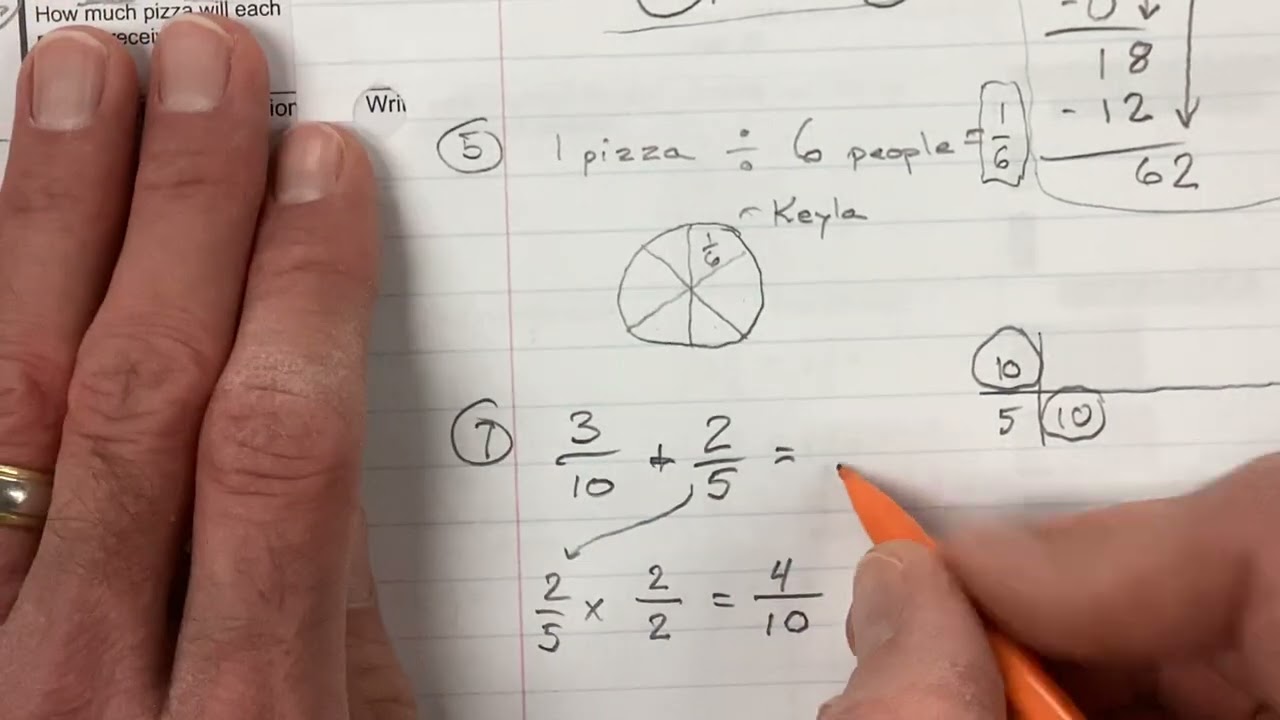 How much pizza will each
Wri
- 0
18
- 12
62
5 1 pizza ÷ 6 people = 1/6
Keyla
1/6
10
5 10
7 3/10 + 2/5 =
2/5 x 2/2 = 4/10